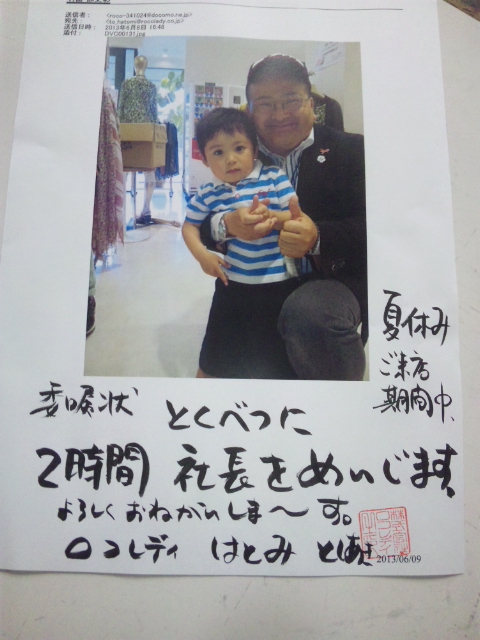 送信者： <roco-341024@docomo.ne.jp>
宛先： <to_hatomi@rocolady.co.jp>
送信日時： 2013年6月8日 15:46
添付： DVC00131.jpg
夏休み
ご来店
期間中、
委嘱状 とくべつに
2時間 社長をめいじます、
よろしくおねがいしま〜す。
ロコレディ はとみ としあき
2013/06/09